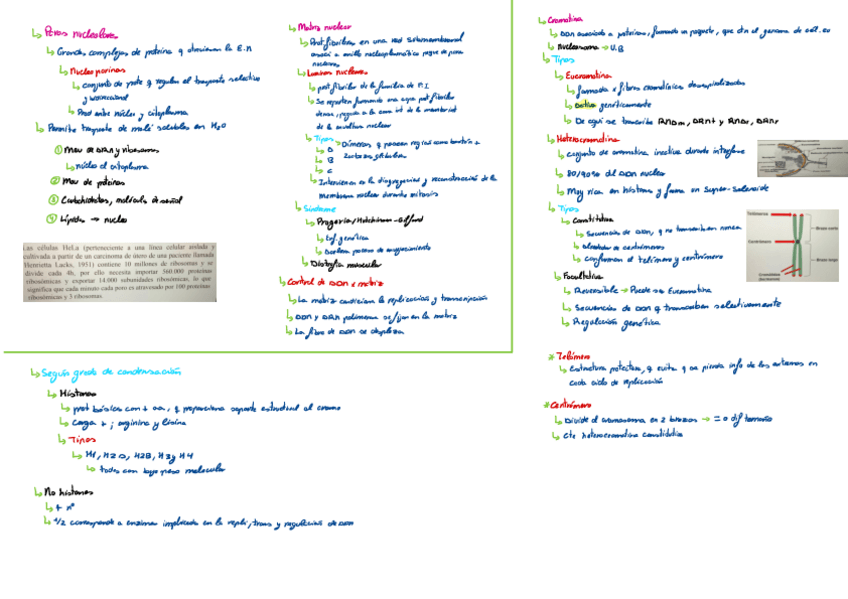 Poros nucleares
Grandes complejos de proteína q atraviesan la E.N
Nucleoporinas
conjunto de prote q regulan el trasporte selectivo
y bidireccional
entre núcleo y citoplasma
Permite trasporte de molé solubles en H2O
① Mov de ARN y ribosomas
núcleo al citoplasma
② Mov de proteínas
③ Carbohidratos, molécula de señal
④ Lípidos → nucleo
Las células HeLa (perteneciente a una línea celular aislada y
cultivada a partir de un carcinoma de útero de una paciente llamada
Henrietta Lacks, 1951) contiene 10 millones de ribosomas y se
divide cada 4h, por ello necesita importar 560.000 proteínas
ribosómicas y exportar 14.000 subunidades ribosómicas, lo que
significa que cada minuto cada poro es atravesado por 100 proteínas
ribosómicas y 3 ribosomas.
Matriz nuclear
Prot fibrilares en una red
nucleares
Laminas nucleares
prot fibrilar de la familia de F.I
Se reparten formando una capa prot fibrilar
densa, pegada a la cara int de la membrana int
de la envoltura nuclear
Tipos
A
B
C
Dímeros q poseen región como bastón +
2 cabezas globulares
Intervienen en la disgregación y reconstrucción de la
membrana nuclear durante mitosis
Síndrome
Progeria/Hutchinson-Gilford
Enf. genética
Acelera proceso de envejecimiento
Distrofia muscular
Control de ADN x matriz
La matriz condiciona la replicación y transcripción
ADN y ARN polimerasa se fijan en la matriz
La fibra de ADN se desplaza
Cromatina
ADN asociado a proteínas, formando un paquete, que ctn el genoma de cél. eu
Nucleosoma → U.B
Tipos
Eucromatina
formada x fibras cromatínicas desespiralizadas
Activa genéticamente
De aquí se transcribe ARNm, ARNt y ARNr
Heterocromatina
conjunto de cromatina inactiva durante interfase
80/90% del ADN nuclear
Muy rica en histonas y forma un Super-solenoide
Tipos
Constitutiva
Secuencia de ADN, q no transcriben nunca
Alrededor de centrómeros
conforman el telómero y centrómero
Facultativa
Reversible → Puede ser Eucromatina
Secuencias de ADN q transcriben selectivamente
Regulación genética
Telómero
Centrómero
Brazo corto
Brazo largo
* Telómero
Estructura protectora, q evita q se pierda info de los extremos en
cada ciclo de replicación
* Centrómero
Divide el cromosoma en 2 brazos → = o dif tamaño
Cte heterocromatina constitutiva
Según grado de condensación
Histonas
prot básicas con + aa, q proporciona soporte estructural al cromo
Carga + ; arginina y lisina
Tipos
H1, H2A, H2B, H3 y H4
todas con bajo peso molecular
No histonas
+ nº
1/2 corresponde a enzimas implicadas en la repli, trans y regulación de ADN